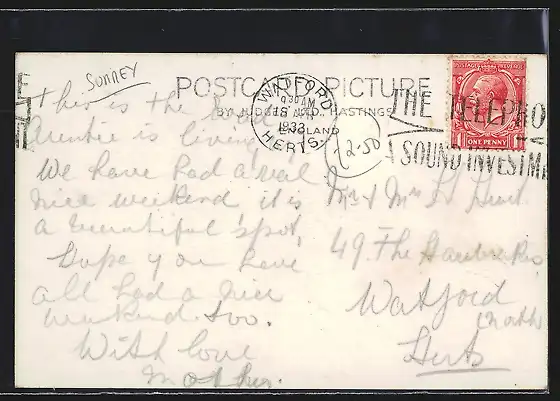 SURREY
POSTCARD PICTURE
BY JUDGES' LTD., HASTINGS
WATFORD
9 30 AM
1933
ENGLAND
HERTS.
POSTAGE REVENUE
ONE PENNY
THE TELEPHO
A SOUND INVESTME
2-50
This is the
Auntie is living
We have had a real
nice weekend, it is
a beautiful spot,
Hope you have
all had a nice
weekend too.
With love
Mother.
Mr & Mrs H
49. The
Watford
North
Herts